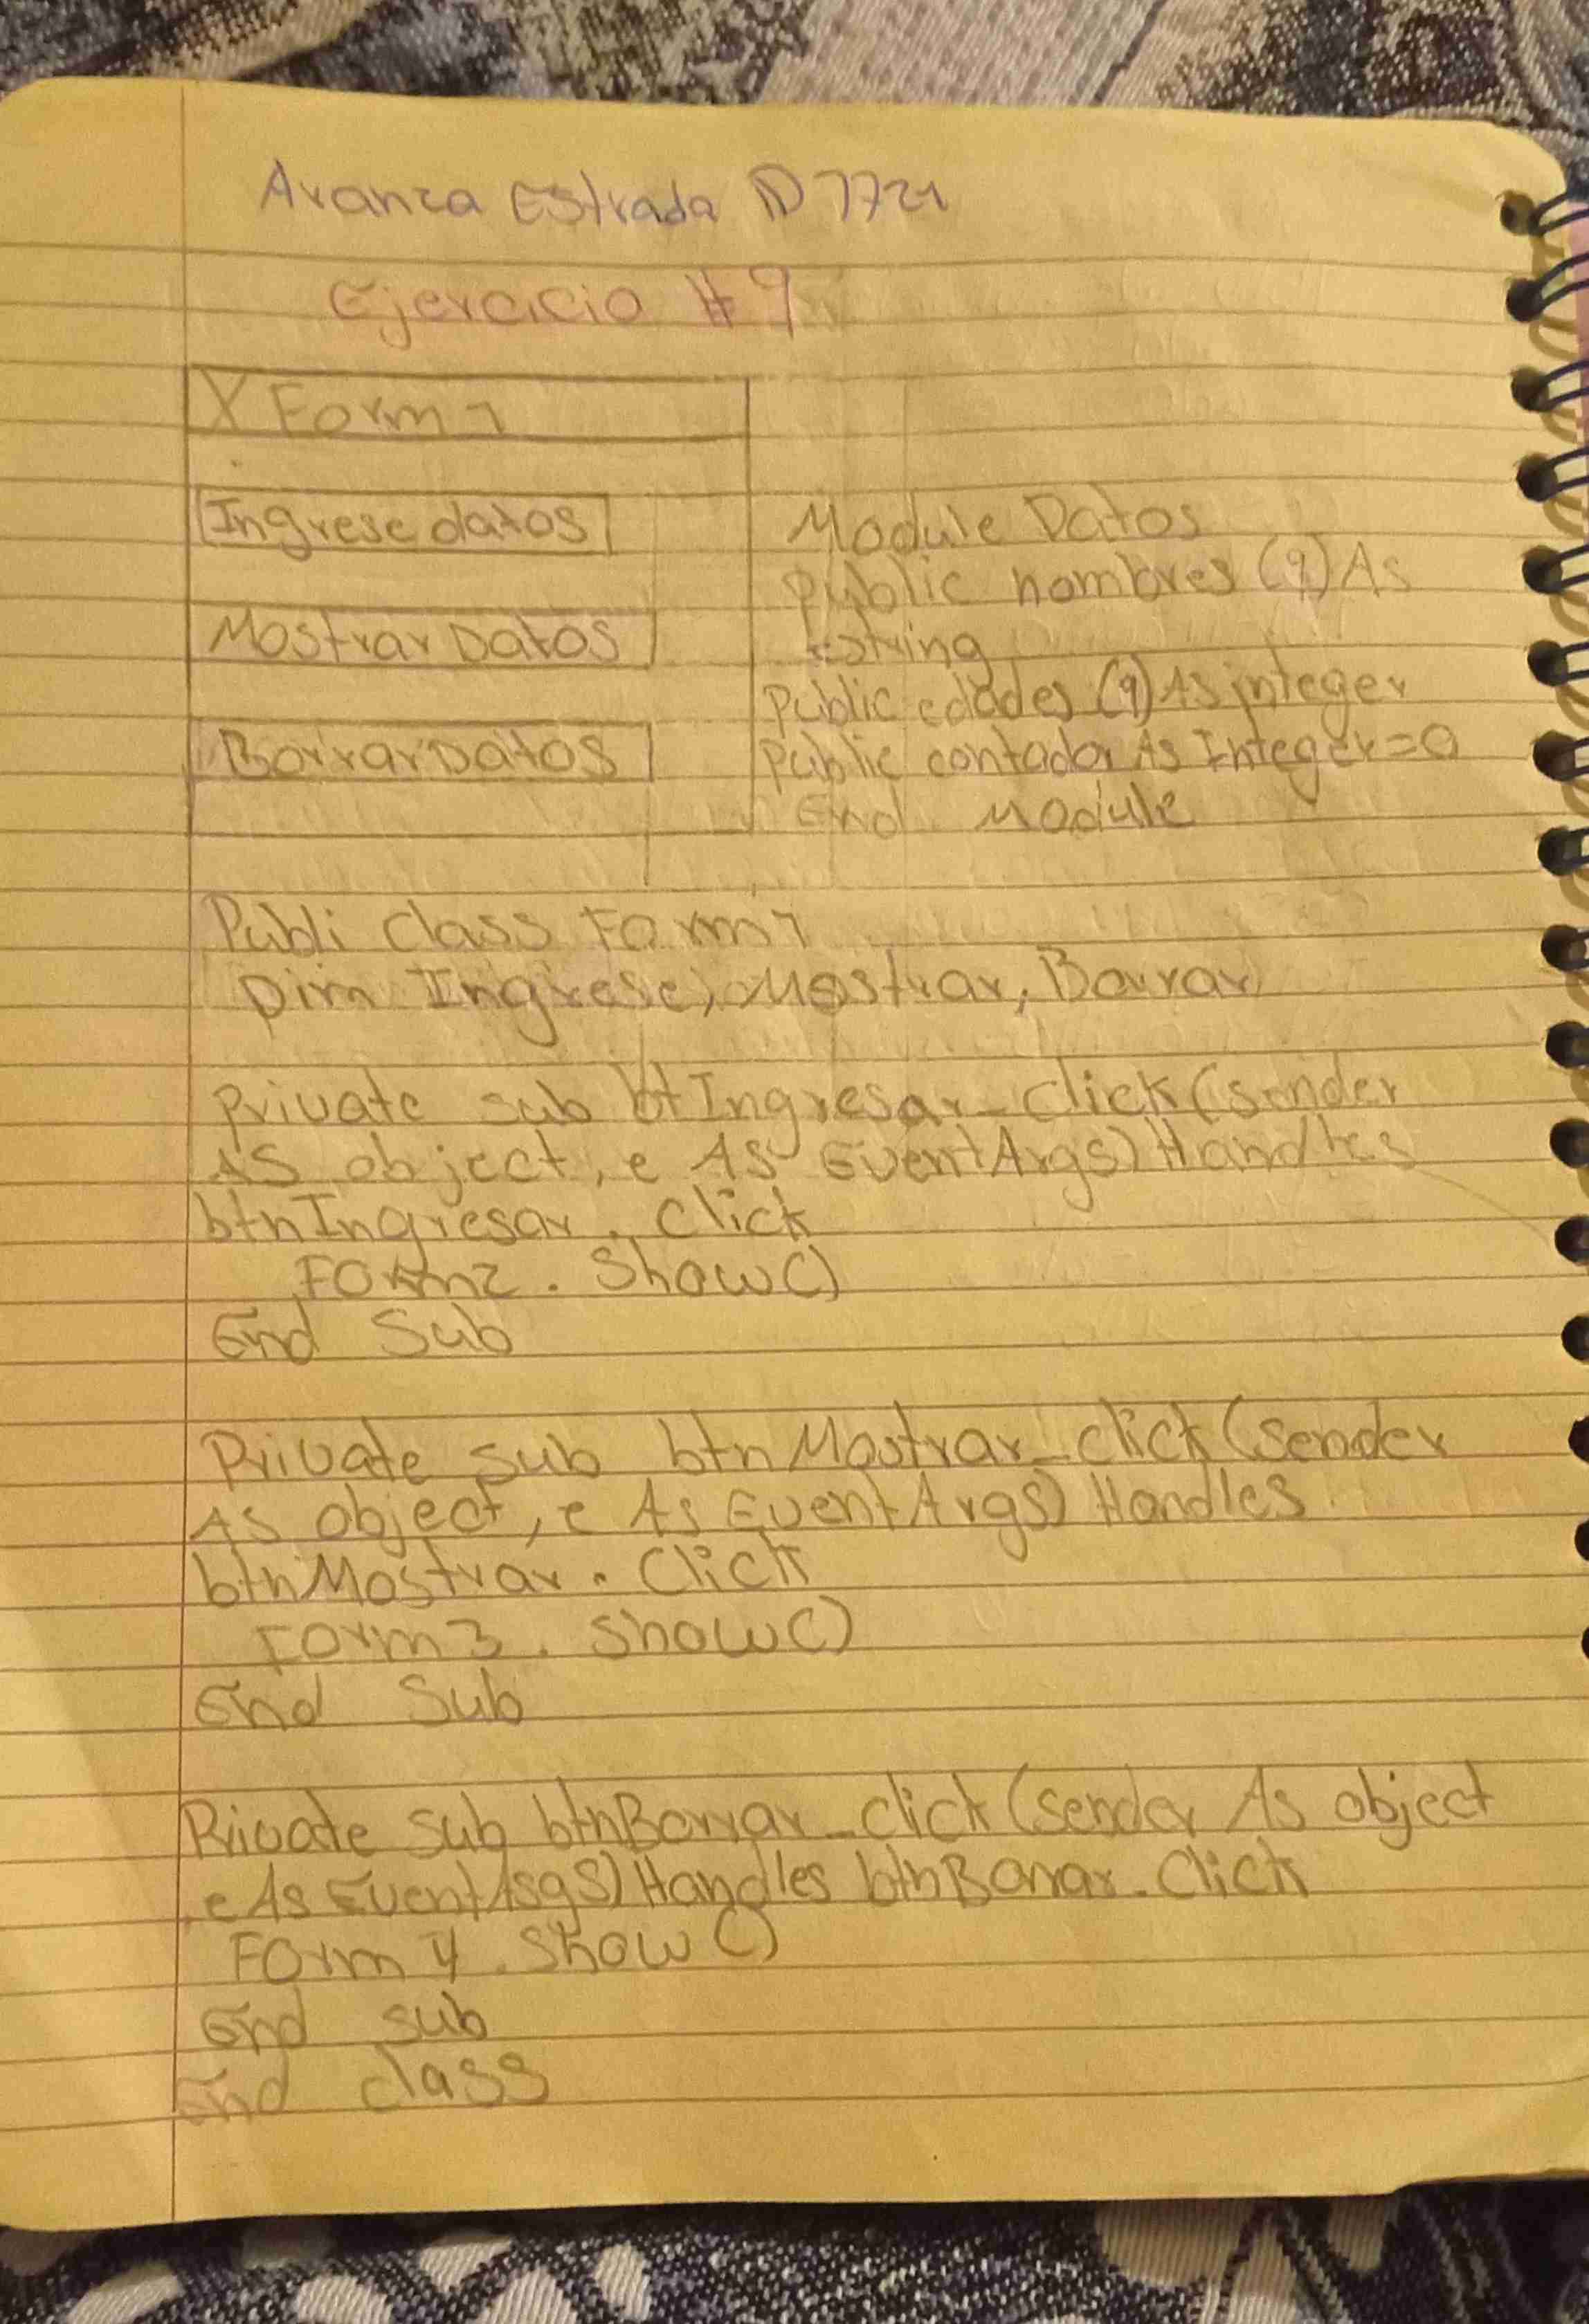 Aranza Estrada ID 7721
Ejercicio #9
X Form 1
Ingrese datos
Mostrar Datos
Borrar Datos
Module Datos
Public nombres (9) As
string
Public edades (9) As integer
Public contador As Integer = 0
End Module
Publi class Form 1
Dim Ingrese, Mostrar, Borrar
Private sub btIngresar_click (sender
AS object, e As EventArgs) Handles
btnIngresar. Click
Form2. Show()
End Sub
Private sub btnMostrar_click (sender
As object, e As EventArgs) Handles
btnMostrar. Click
Form3. Show()
End Sub
Private sub btnBorrar_click (sender As object
, e As EventAsgs) Handles btnBorrar. Click
Form 4. Show()
End sub
End class